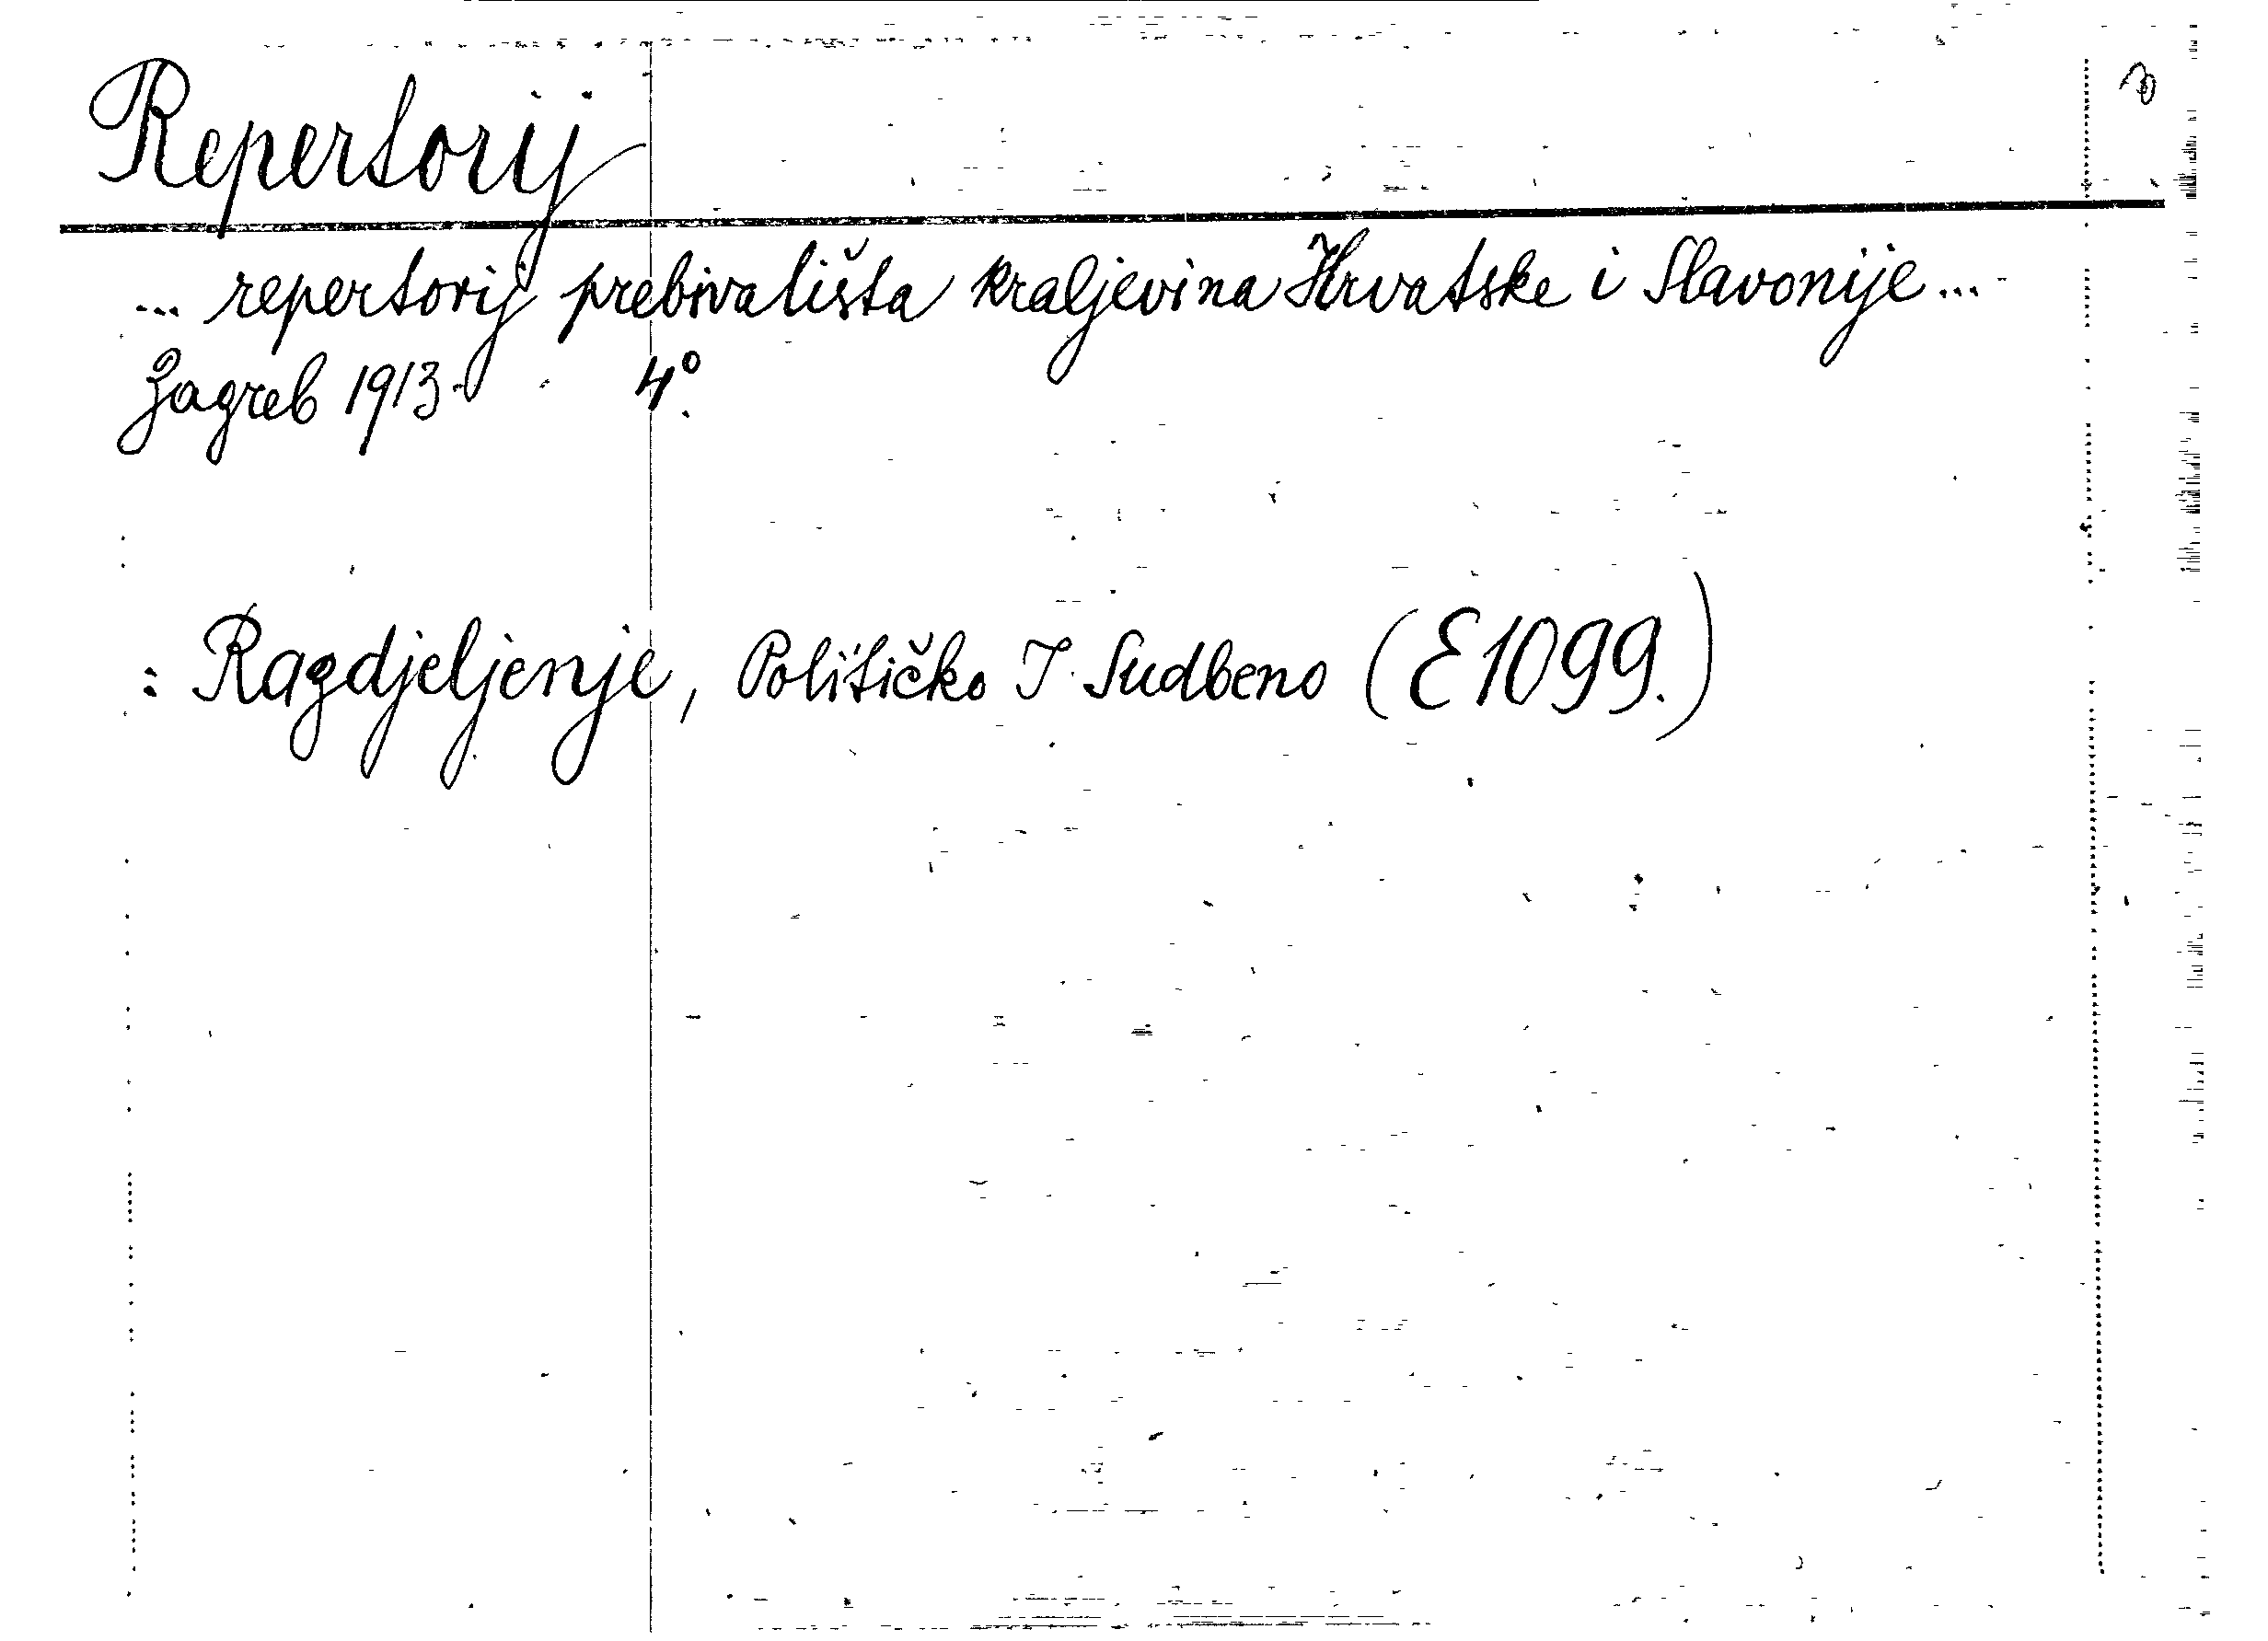 Repertorij
... repertorij prebivališta kraljevina Hrvatske i Slavonije ...
Zagreb 1913. 4°.
: Razdjeljenje, Političko I. Sudbeno (E1099.)